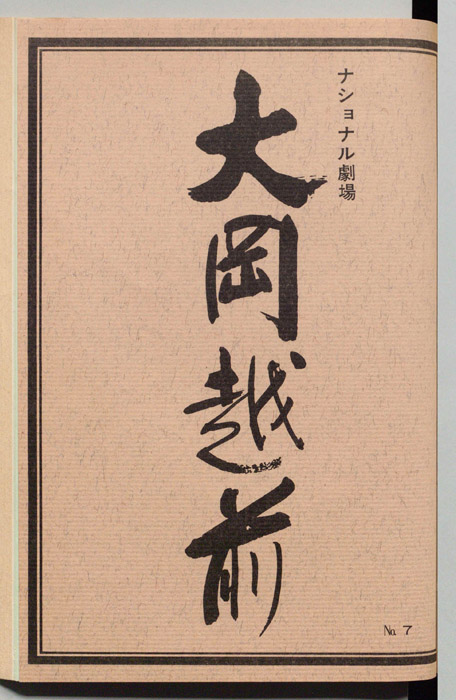 ナショナル劇場
大岡越前
№ 7